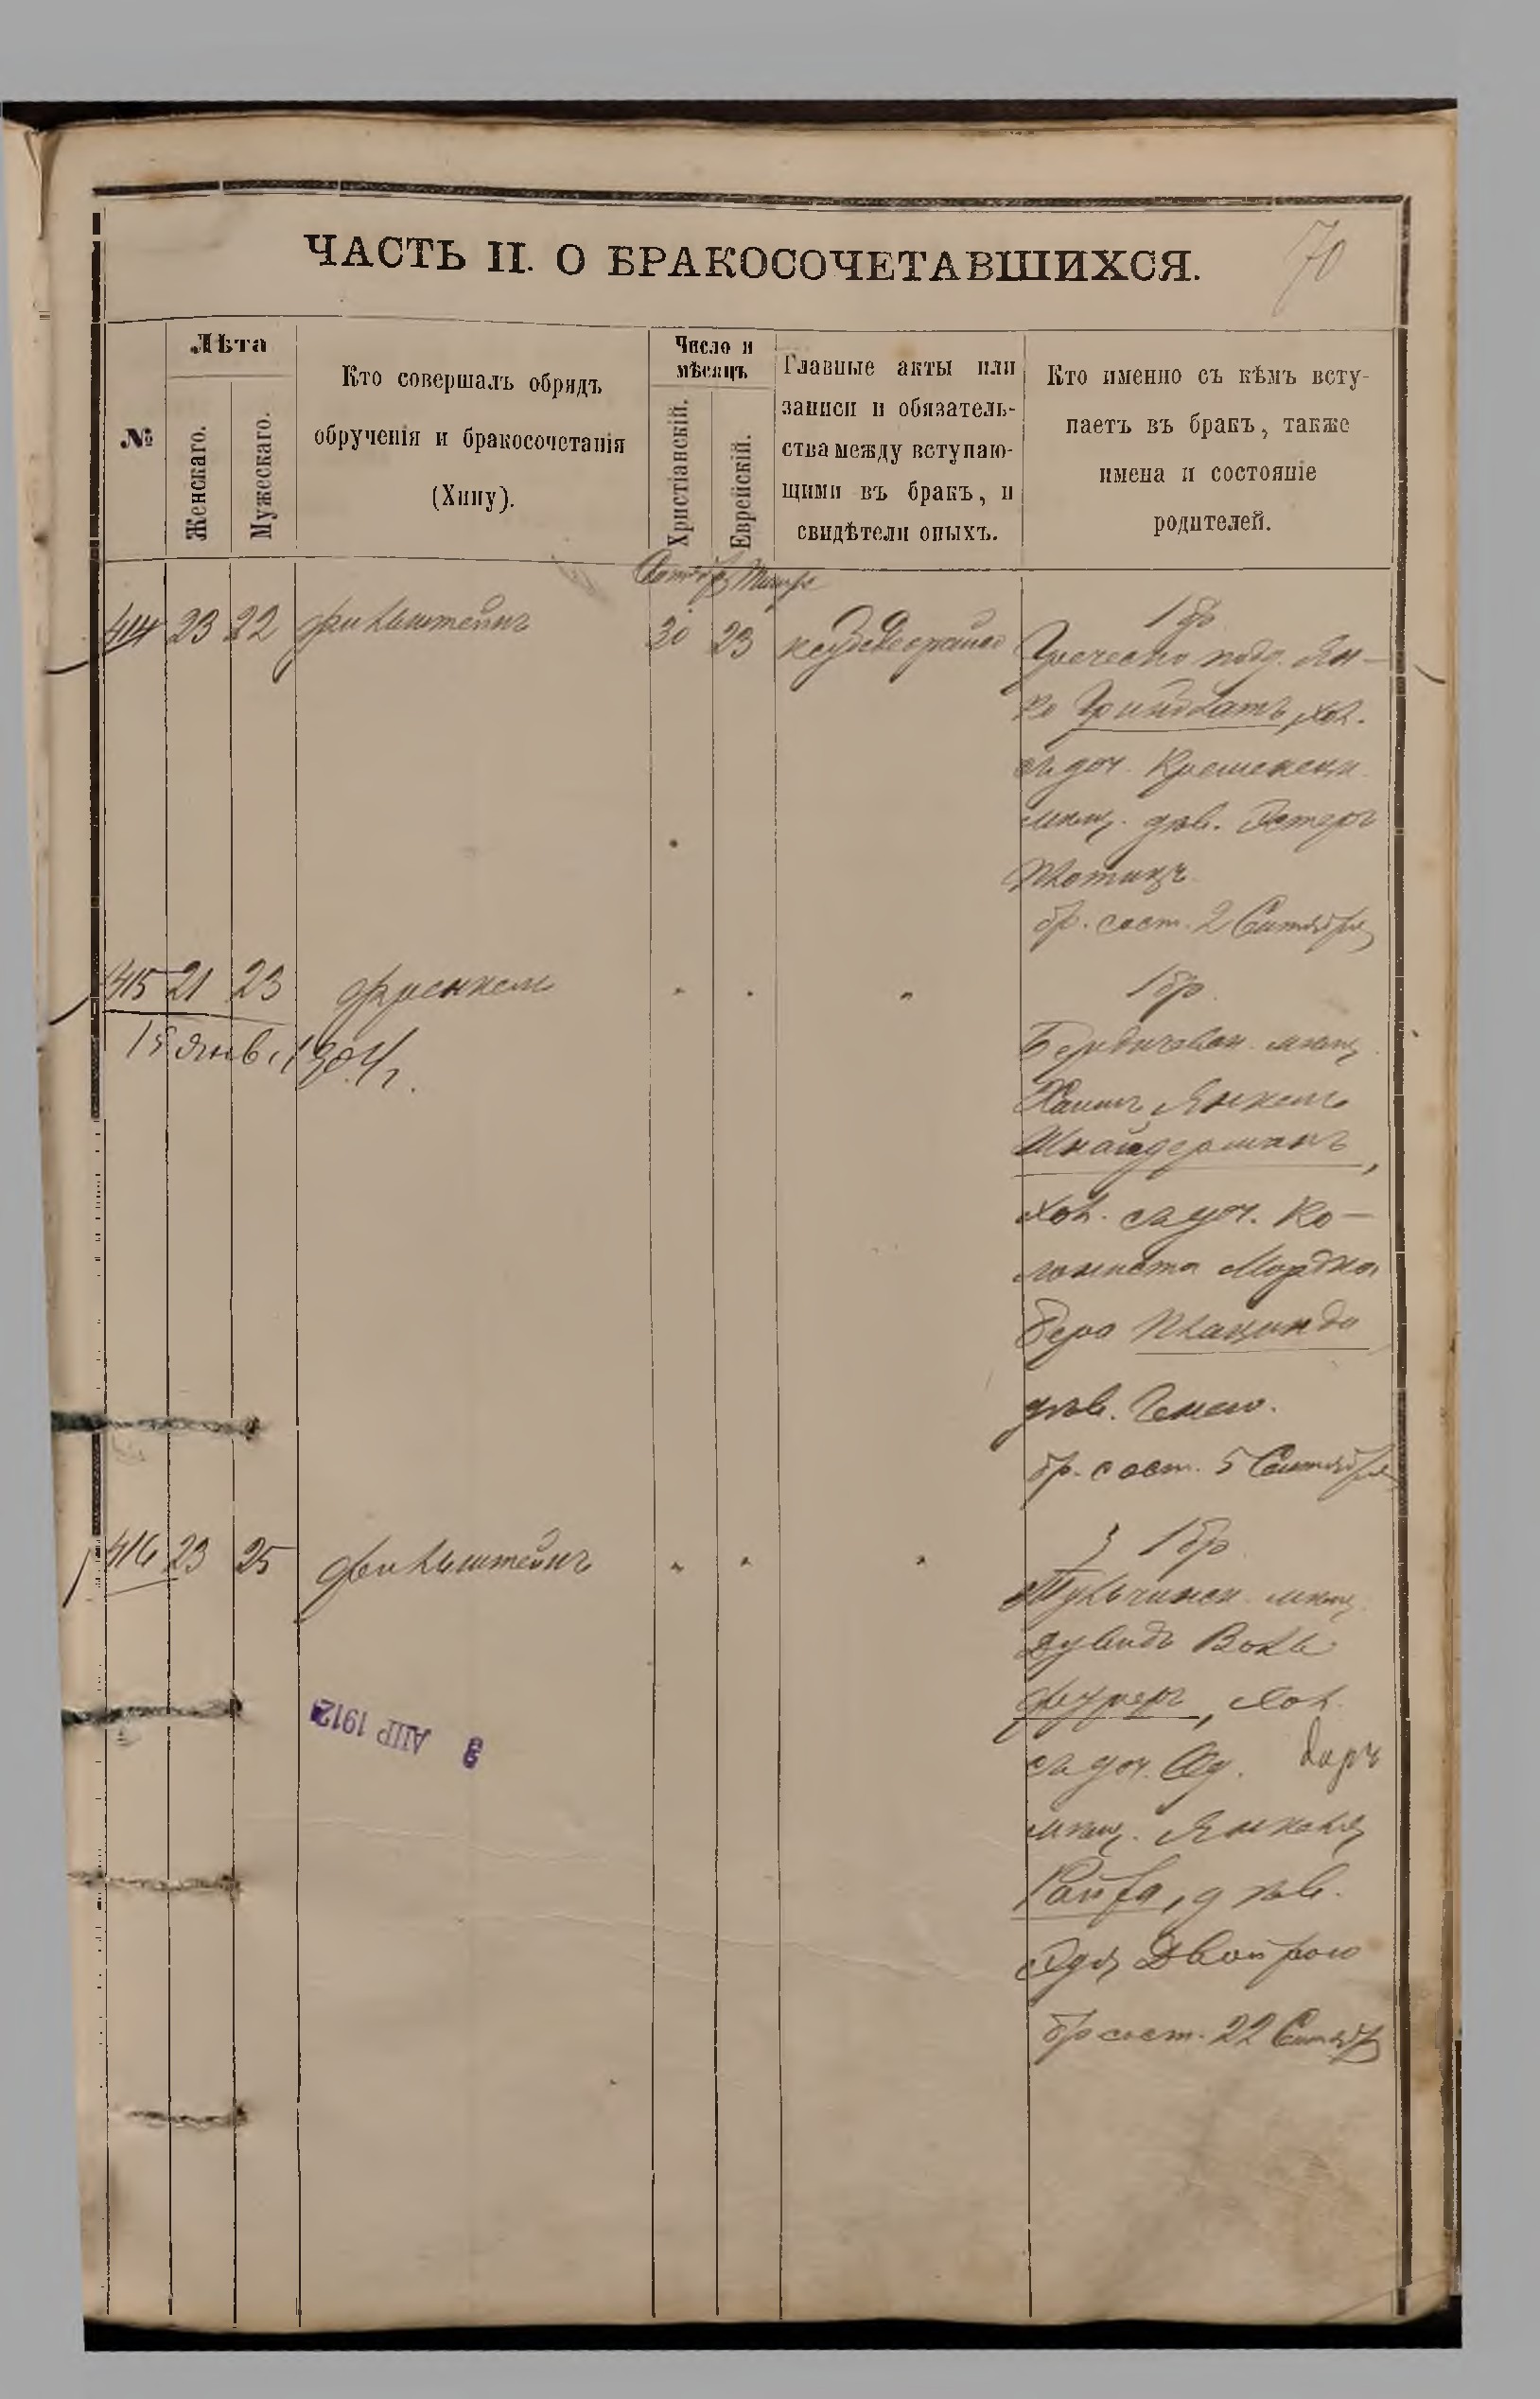 70
ЧАСТЬ II. О БРАКОСОЧЕТАВШИХСЯ.
№
Лѣта
Женскаго.
Мужескаго.
Кто совершалъ обрядъ
обрученія и бракосочетанія
(Хипу).
Число и
мѣсяцъ
Христіанскій.
Еврейскій.
Главные акты или
записи и обязатель-
ства между вступаю-
щими въ бракъ, и
свидѣтели оныхъ.
Кто именно съ кѣмъ всту-
паетъ въ бракъ, также
имена и состояніе
родителей.
414 23 22 Финкльштейнъ 30 23
1 бр.
Греческо подд. Ян-
ко Гринблатъ, хол.
съ доч. Кременецк.
мѣщ. дѣв. Эстеръ
Плотицъ
бр. сост. 2 Сентября
415 21 23 Френкель " " "
15 Янв. 1904 г.
1 бр.
Бердичевск. мѣщ.
Хаимъ Янкель
Шнайдерманъ,
хол. съ доч. Ко-
лониста Мордка
Бера Плацинда
дѣв. Генею.
бр. сост. 5 Сентября
416 23 25 Финкльштейнъ " " "
1 бр.
Тульчинск. мѣщ.
Дувидъ Волъ
Фуреръ, хол.
съ доч. Од.
мѣщ. Янкеля
Ройза, дѣв.
Эдя Двойрою
бр сост. 22 Сентябр
3 АПР 1912